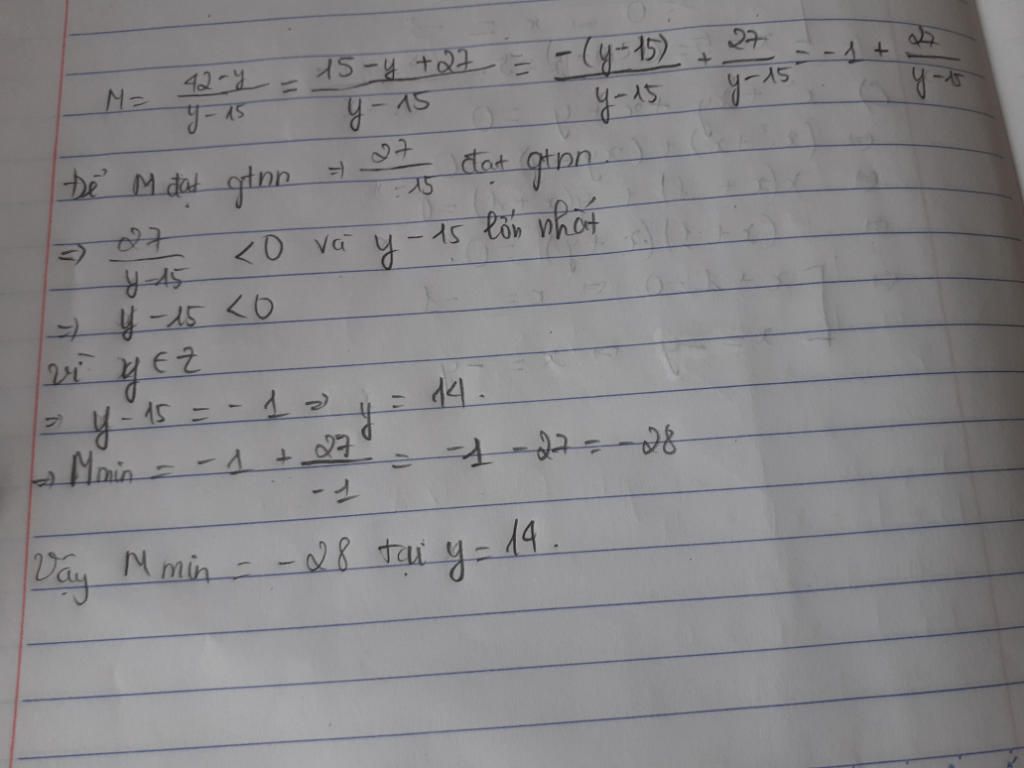 M = \frac{42-y}{y-15} = \frac{15-y+27}{y-15} = \frac{-(y-15)}{y-15} + \frac{27}{y-15} = -1 + \frac{27}{y-15}
Để M đạt gtnn ⇒ \frac{27}{-15} đạt gtnn.
⇒ \frac{27}{y-15} < 0 và y - 15 lớn nhất
⇒ y - 15 < 0
vì y ∈ Z
⇒ y - 15 = -1 ⇒ y = 14.
⇒ Mmin = -1 + \frac{27}{-1} = -1 - 27 = -28
Vậy M min = -28 tại y = 14.